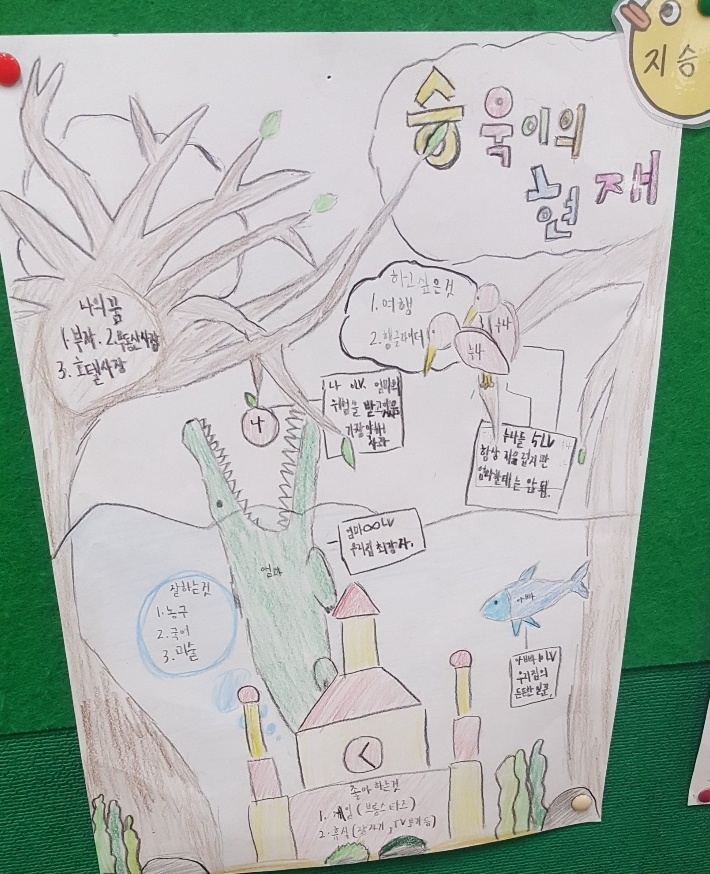 지승
승욱이의
현재
하고싶은것
1. 여행
2. 행글라이더
누나
누나
나의 꿈
1. 부자. 2. 부동산사장
3. 호텔사장
나 0LV 엄마의
위협을 받고있음
가장 약하다
나
누나들 5LV
항상 지웅 럽지만
엄마한테는 안 됨.
엄마∞LV
우리집 최강자.
엄마
잘하는것
1. 농구
2. 국어
3. 미술
아빠
아빠 10LV
우리집의
든든한 일꾼.
좋아하는것
1. 게임 (브롤스타즈)
2. 휴식 (잠자기, TV보기 등)